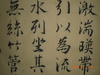 激湍暎帶
引以為流
水列坐其
無絲竹管